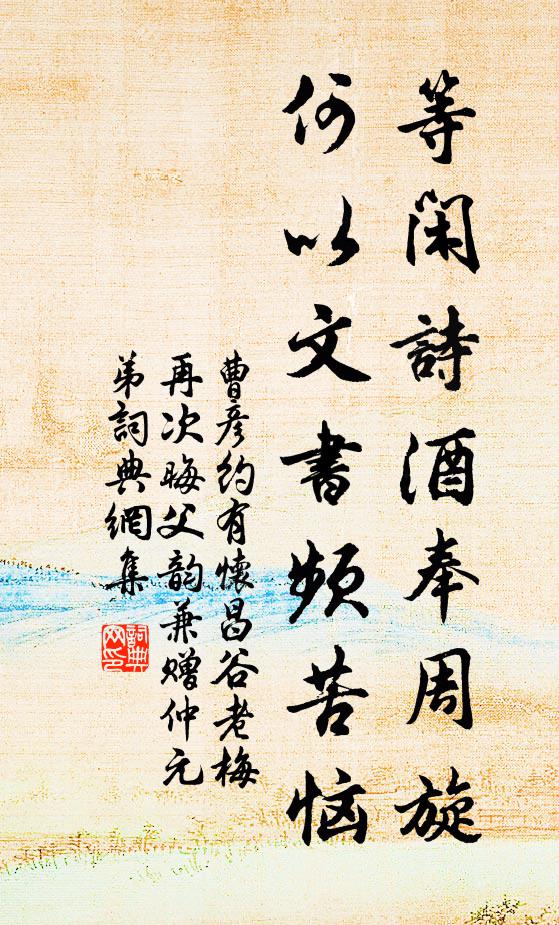 等闲詩酒奉周旋
何以文書頻苦惱
曹彦約有懷昌谷老梅
再次晦父韵兼赠仲元
弟詞典網集
詞典
网印